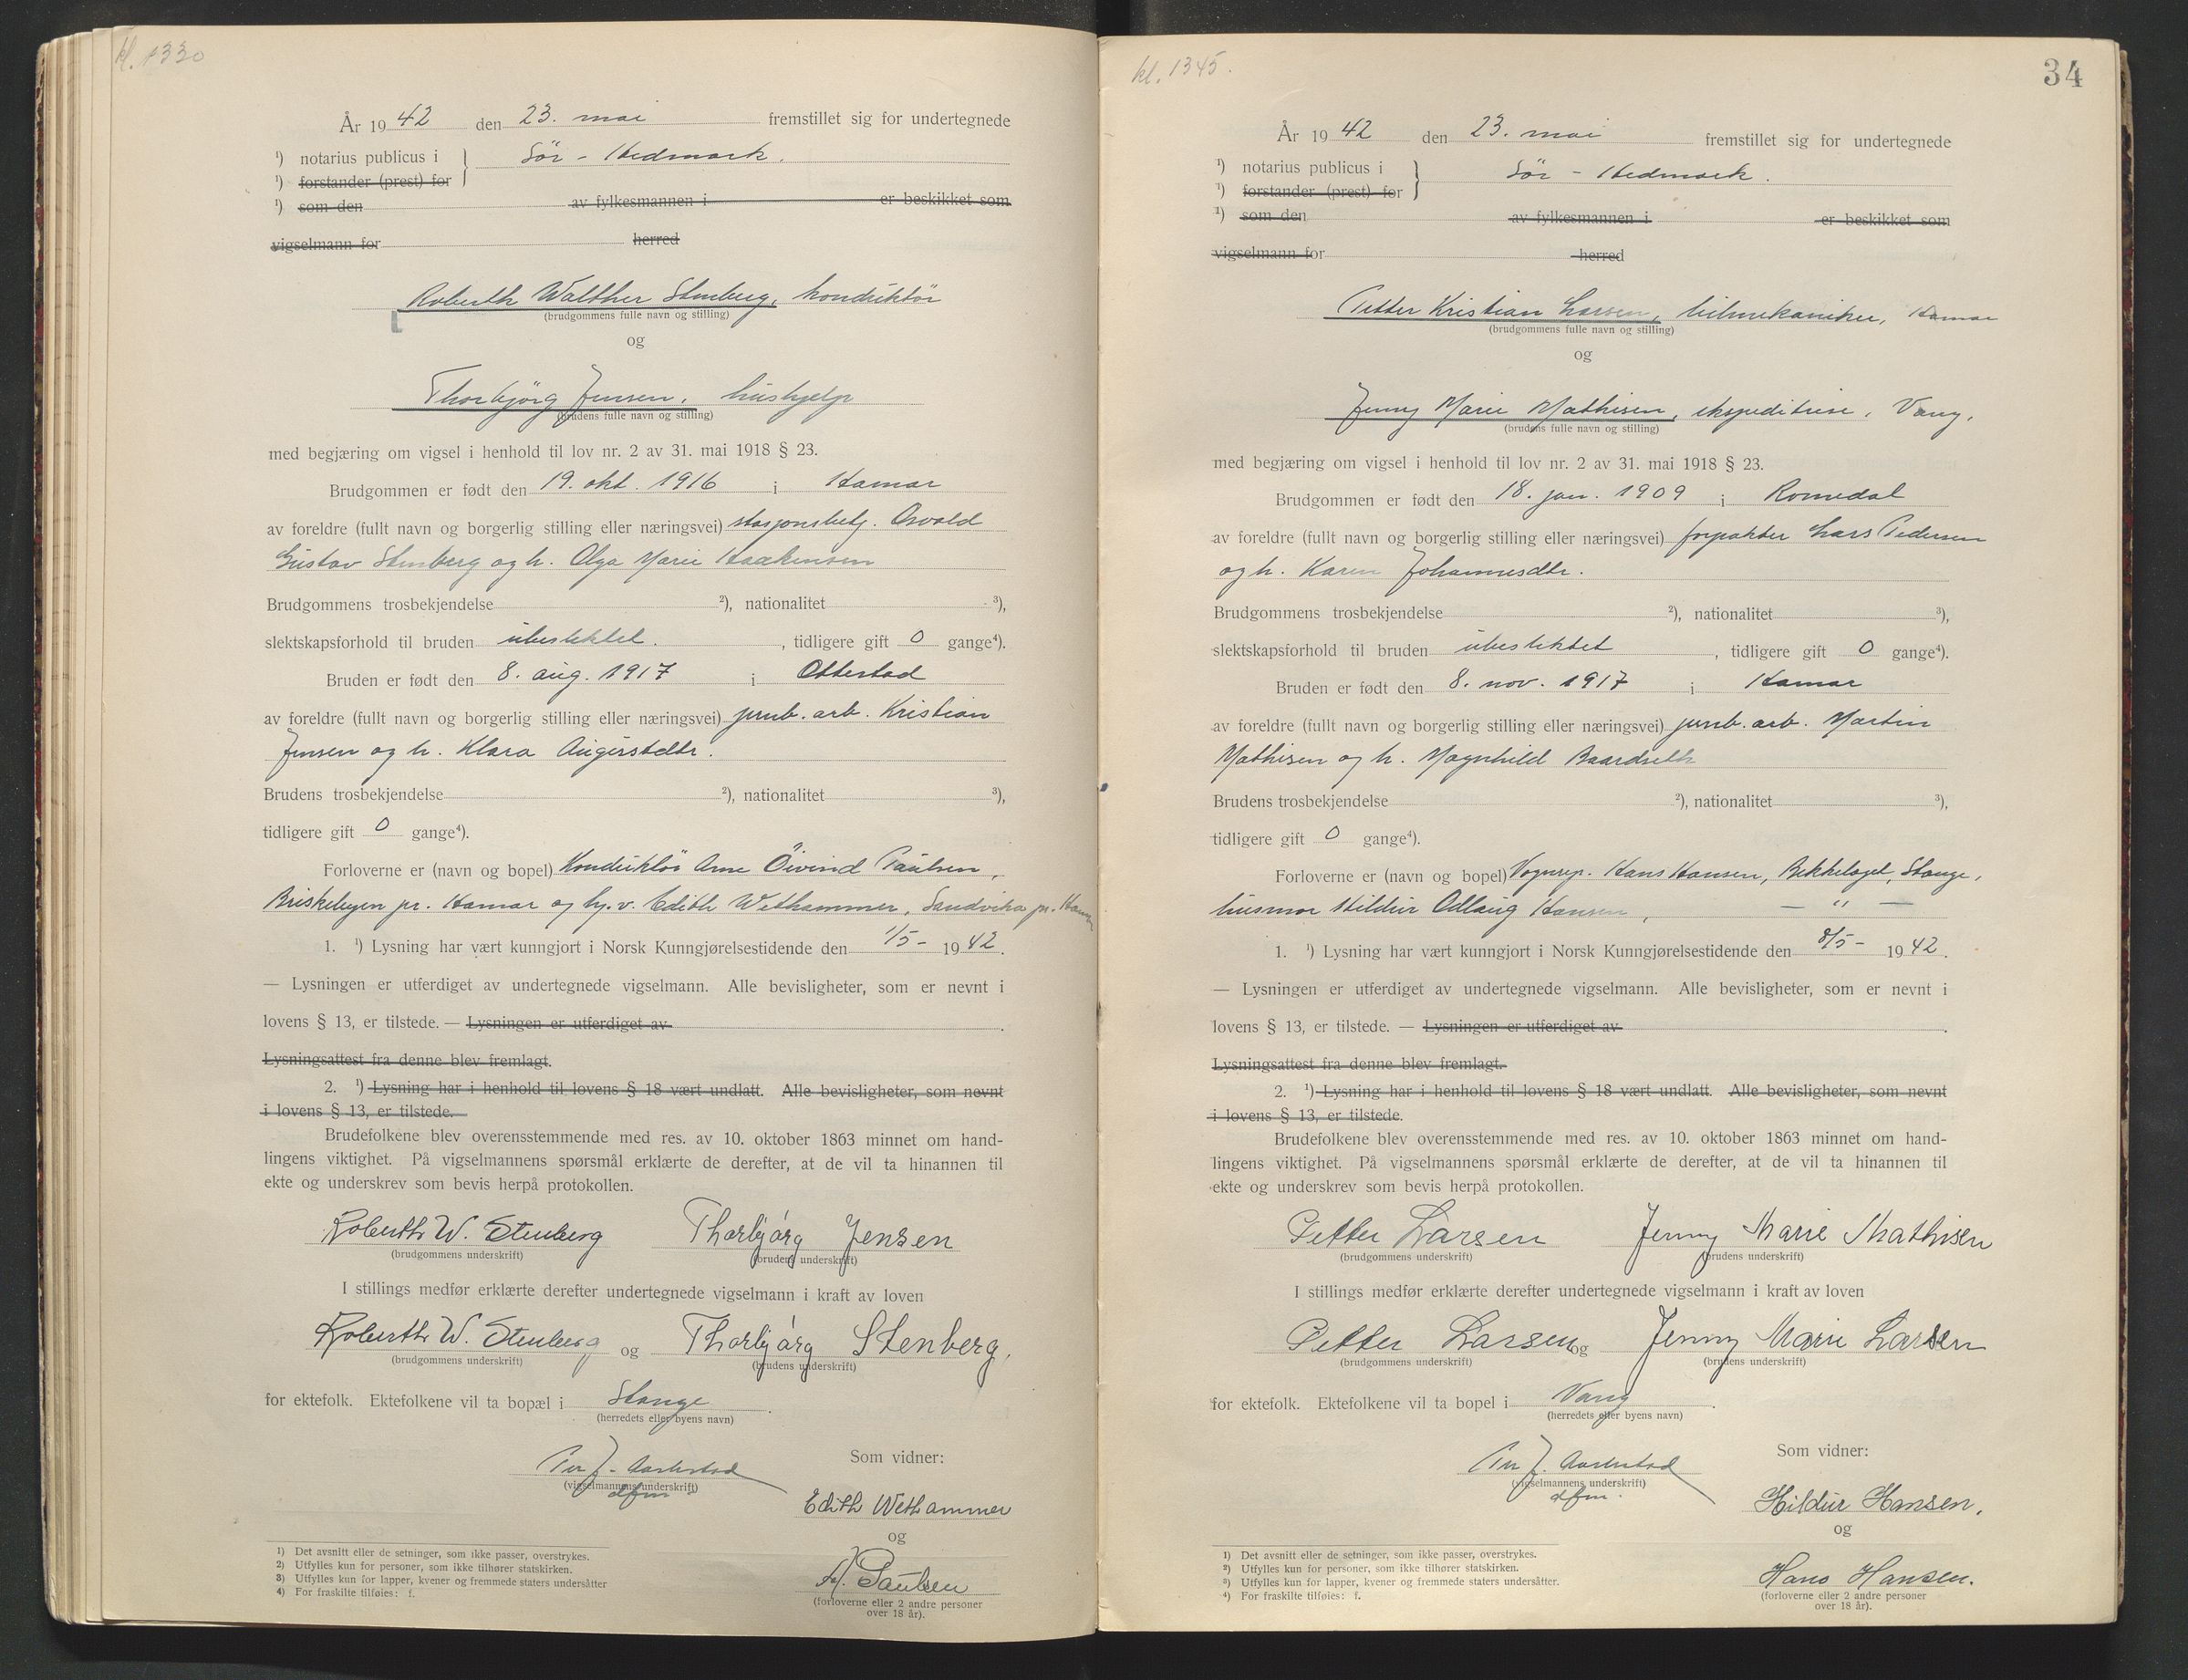 kl. 1330
År 1942 den 23. mai fremstillet sig for undertegnede
¹) notarius publicus i } Sör - Hedmark.
¹) forstander (prest) for
¹) som den av fylkesmannen i er beskikket som
vigselmann for herred
Roberth Walther Stenberg, konduktör
(brudgommens fulle navn og stilling)
og
Thorbjörg Jensen, hushjelp
(brudens fulle navn og stilling)
med begjæring om vigsel i henhold til lov nr. 2 av 31. mai 1918 § 23.
Brudgommen er født den 19. okt. 1916 i Hamar
av foreldre (fullt navn og borgerlig stilling eller næringsvei) stasjonsbetj. Osvald
Gustav Stenberg og h. Olga Marie Haakensen
Brudgommens trosbekjendelse ²), nationalitet ³),
slektskapsforhold til bruden ubesléktet. , tidligere gift 0 gange⁴).
Bruden er født den 8. aug. 1917 i Ottestad
av foreldre (fullt navn og borgerlig stilling eller næringsvei) jernb. arb. Kristian
Jensen og h. Klara Augustdtr.
Brudens trosbekjendelse ²), nationalitet ³),
tidligere gift 0 gange⁴).
Forloverne er (navn og bopel) Konduktör Arne Öivind Paulsen,
Briskebyen pr. Hamar og hj. v. Edith Wethammer, Sandvika pr. Hamar
1. ¹) Lysning har vært kunngjort i Norsk Kunngjørelsestidende den 1/5 - 1942.
— Lysningen er utferdiget av undertegnede vigselmann. Alle bevisligheter, som er nevnt i
lovens § 13, er tilstede. — Lysningen er utferdiget av .
Lysningsattest fra denne blev fremlagt.
2. ¹) Lysning har i henhold til lovens § 18 vært undlatt. Alle bevisligheter, som nevnt
i lovens § 13, er tilstede.
Brudefolkene blev overensstemmende med res. av 10. oktober 1863 minnet om hand-
lingens viktighet. På vigselmannens spørsmål erklærte de derefter, at de vil ta hinannen til
ekte og underskrev som bevis herpå protokollen.
Roberth W. Stenberg Thorbjörg Jensen
(brudgommens underskrift) (brudens underskrift)
I stillings medfør erklærte derefter undertegnede vigselmann i kraft av loven
Roberth W. Stenberg og Thorbjörg Stenberg.
(brudgommens underskrift) (brudens underskrift)
for ektefolk. Ektefolkene vil ta bopæl i Stange .
(herredets eller byens navn)
Per J. Aarkstad Som vidner:
(vigselmannens underskrift)
dfm.
Edith Wethammer
og
A. Paulsen
(forloverne eller 2 andre personer
over 18 år).
¹) Det avsnitt eller de setninger, som ikke passer, overstrykes.
²) Utfylles kun for personer, som ikke tilhører statskirken.
³) Utfylles kun for lapper, kvener og fremmede staters undersåtter
⁴) For fraskilte tilføies: f.
kl. 1345.
34
År 1942 den 23. mai fremstillet sig for undertegnede
¹) notarius publicus i } Sör - Hedmark.
¹) forstander (prest) for
¹) som den av fylkesmannen i er beskikket som
vigselmann for herred
Petter Kristian Larsen, bilmekaniker, Hamar
(brudgommens fulle navn og stilling)
og
Jenny Marie Mathisen, ekspeditrise, Vang.
(brudens fulle navn og stilling)
med begjæring om vigsel i henhold til lov nr. 2 av 31. mai 1918 § 23.
Brudgommen er født den 18. jan. 1909 i Romedal
av foreldre (fullt navn og borgerlig stilling eller næringsvei) forpakter Lars Pedersen
og h. Karen Johannesdtr.
Brudgommens trosbekjendelse ²), nationalitet ³),
slektskapsforhold til bruden ubeslektet , tidligere gift 0 gange⁴).
Bruden er født den 8. nov. 1917 i Hamar
av foreldre (fullt navn og borgerlig stilling eller næringsvei) jernb. arb. Martin
Mathisen og h. Magnhild Baardseth
Brudens trosbekjendelse ²), nationalitet ³),
tidligere gift 0 gange⁴).
Forloverne er (navn og bopel) Vognrep. Hans Hansen, Bekkelaget, Stange,
husmor Hildur Odlaug Hansen, — " —
1. ¹) Lysning har vært kunngjort i Norsk Kunngjørelsestidende den 8/5 - 1942.
— Lysningen er utferdiget av undertegnede vigselmann. Alle bevisligheter, som er nevnt i
lovens § 13, er tilstede. — Lysningen er utferdiget av .
Lysningsattest fra denne blev fremlagt.
2. ¹) Lysning har i henhold til lovens § 18 vært undlatt. Alle bevisligheter, som nevnt
i lovens § 13, er tilstede.
Brudefolkene blev overensstemmende med res. av 10. oktober 1863 minnet om hand-
lingens viktighet. På vigselmannens spørsmål erklærte de derefter, at de vil ta hinannen til
ekte og underskrev som bevis herpå protokollen.
Petter Larsen Jenny Marie Mathisen
(brudgommens underskrift) (brudens underskrift)
I stillings medfør erklærte derefter undertegnede vigselmann i kraft av loven
Petter Larsen og Jenny Marie Larsen
(brudgommens underskrift) (brudens underskrift)
for ektefolk. Ektefolkene vil ta bopel i Vang .
(herredets eller byens navn)
Per J. Aarkstad Som vidner:
(vigselmannens underskrift)
dfm.
Hildur Hansen.
og
Hans Hansen.
(forloverne eller 2 andre personer
over 18 år).
¹) Det avsnitt eller de setninger, som ikke passer, overstrykes.
²) Utfylles kun for personer, som ikke tilhører statskirken.
³) Utfylles kun for lapper, kvener og fremmede staters undersåtter.
⁴) For fraskilte tilføies: f.